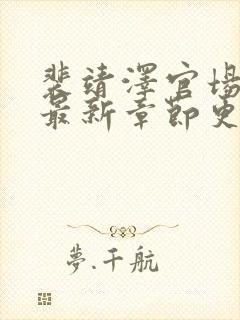 裴靖泽官场
最新章节更
梦.千航